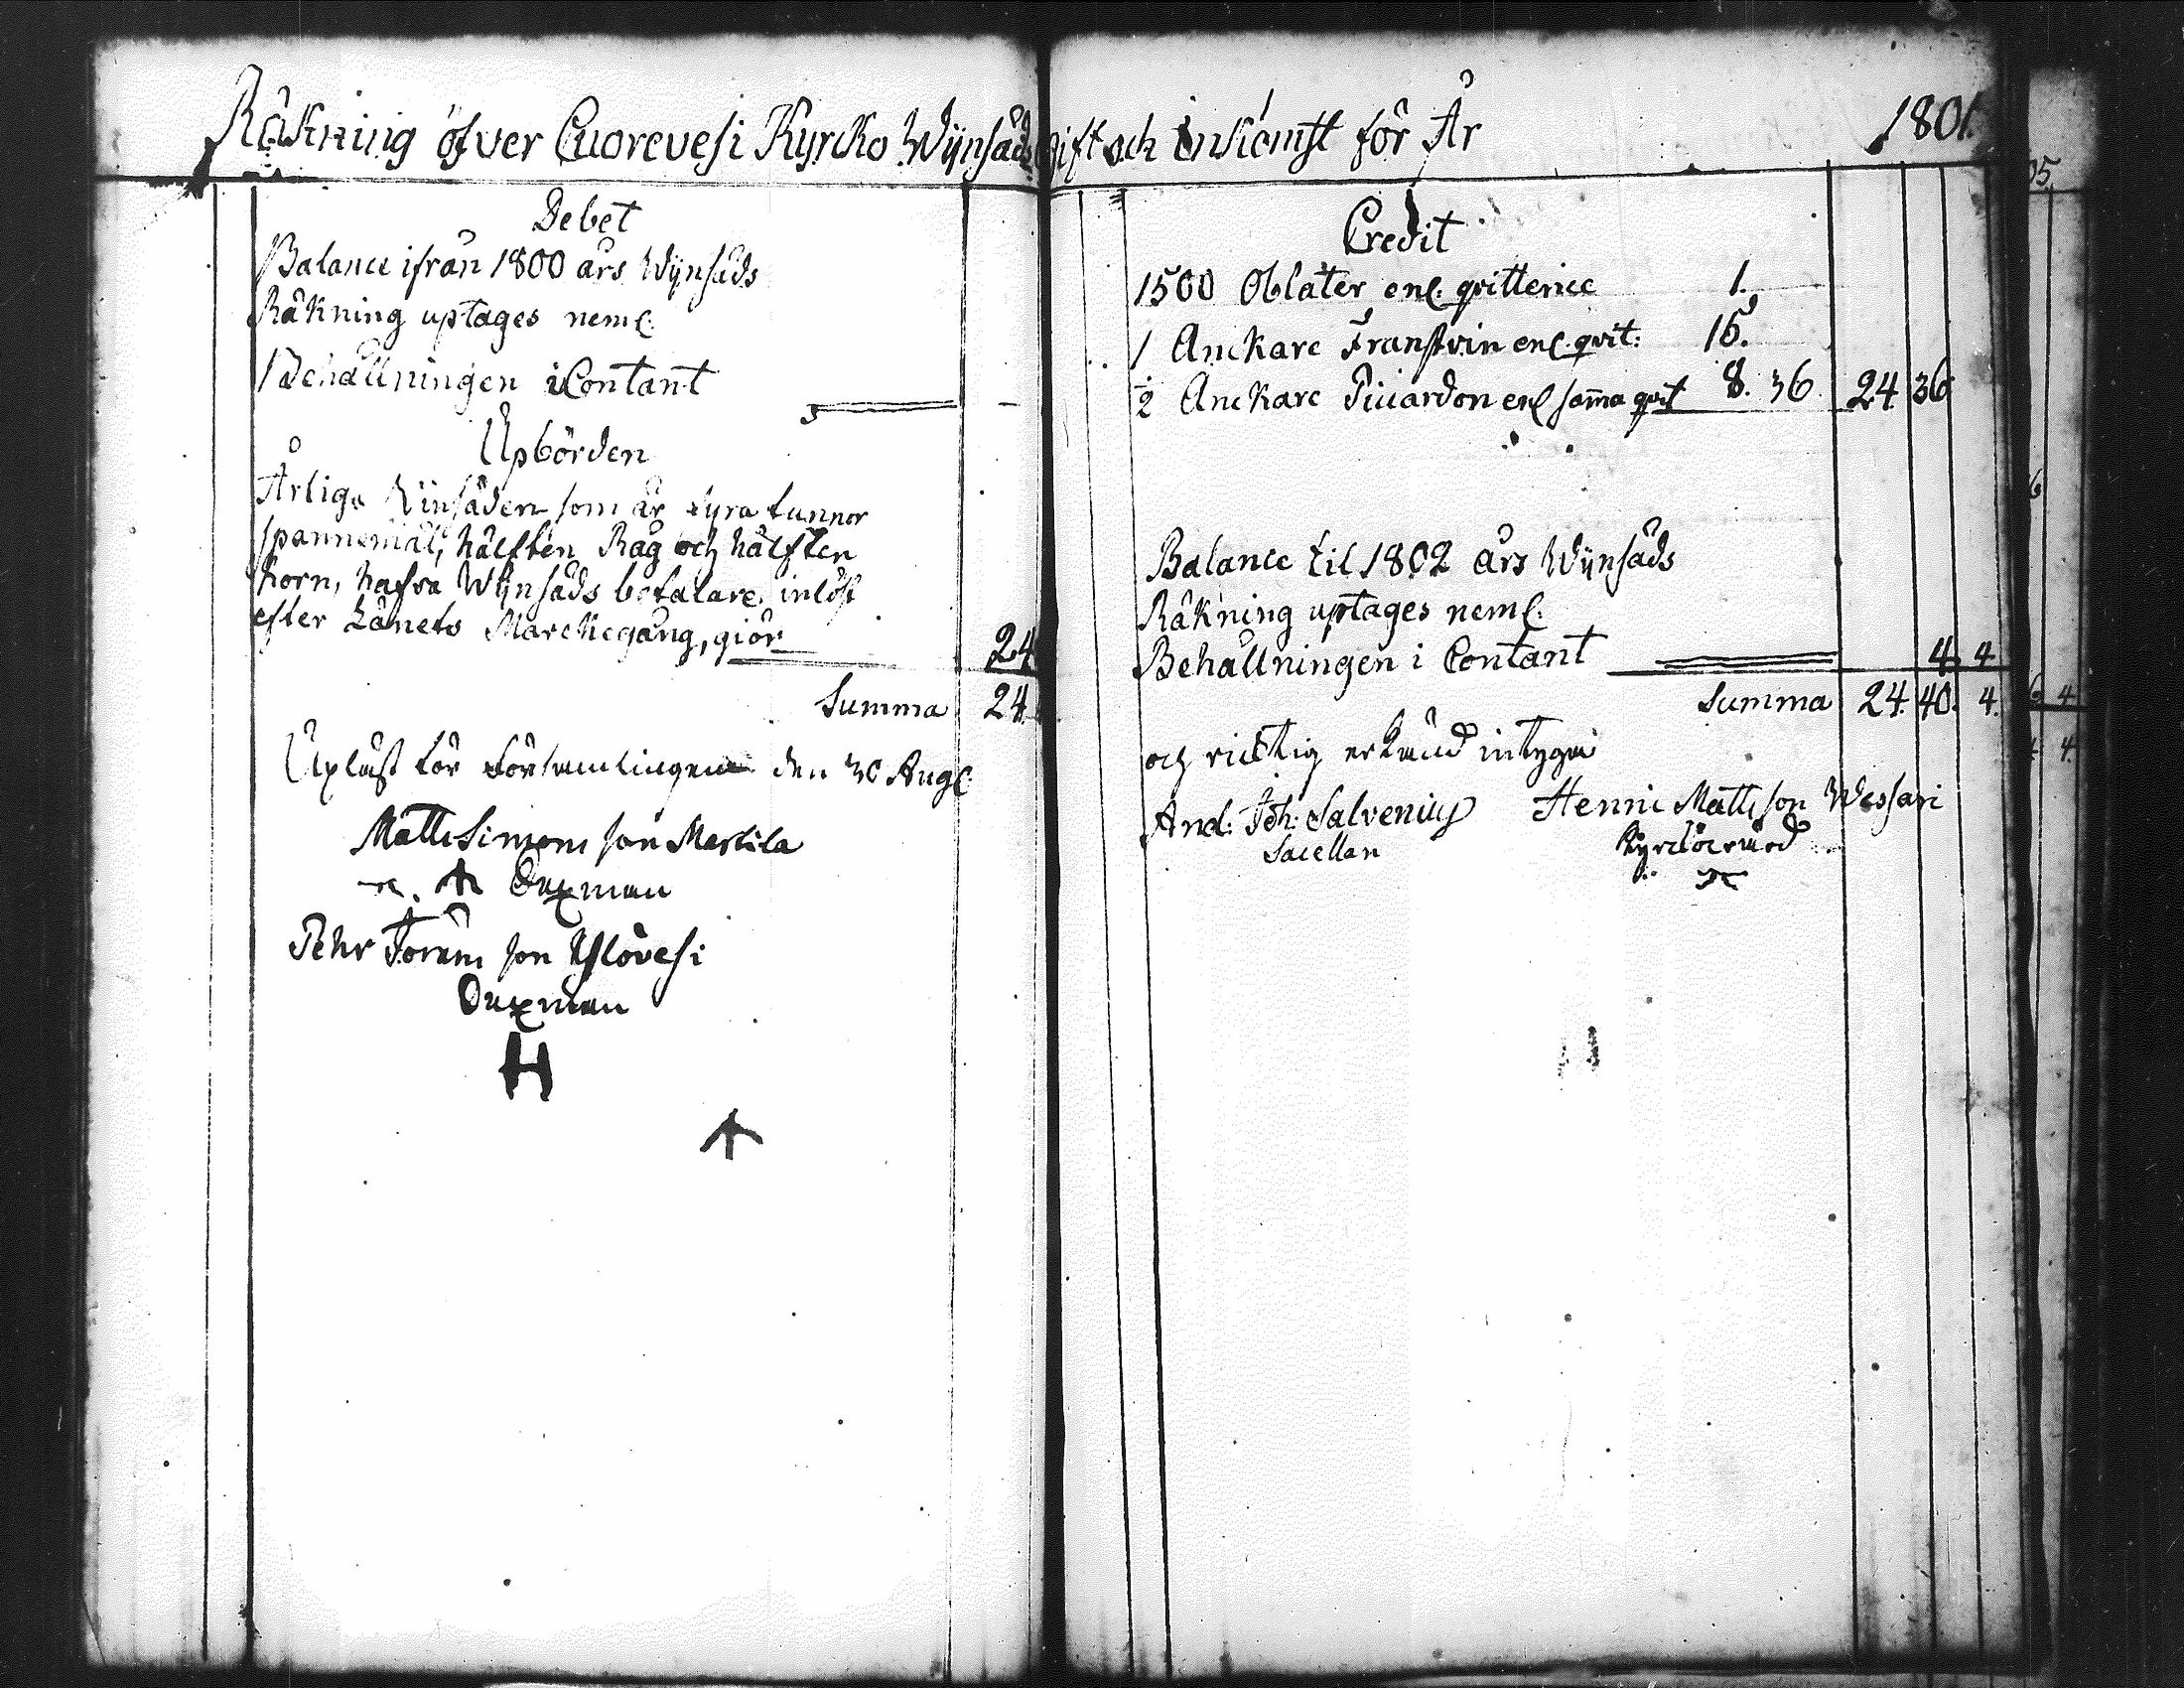 Räkning öfver Cuorevesi Kyrcko Wijnsäds gift och inkomst för År 1801
Debet
Balance ifrån 1800 års Wijnsäds
Räkning uptages neml:
Behållningen i Contant
Upbörden
Årliga Vinsäden som är fyra tunnor
spannemål, hälften Råg och hälften
Korn, hafva Wijnsäds betalare inlöst
efter Länets Marckegång, giör 24
Summa 24
Upläst för Församlingen den 30 Aug:
Matts Simons son Marttila
Sexman
Pehr son Ylövesi
Sexman
H
Credit
1500 Oblater enl: qvittence 1.
1 Anckare Franskvin enl. qvit: 15.
½ Anckare Piccardon enl samma qvit 8. 36 24. 36
Balance til 1802 års Wijnsäds
Räkning uptages neml:
Behållningen i Contant 4 4
Summa 24. 40. 4.
och richtig erkänd intyga
And: Joh: Salvenius
Sacellan
Henric Matts son Wessari
Kyrckovärd
05
6
6 4
4.